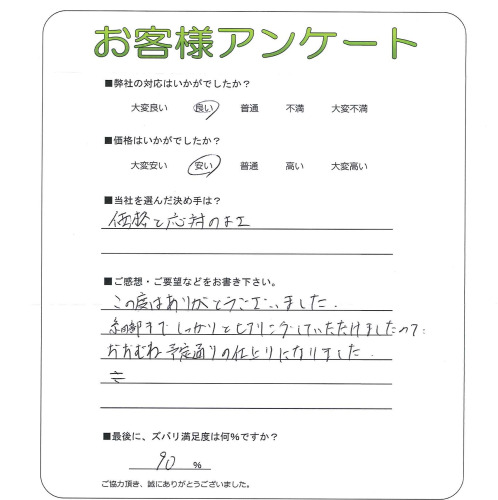 お客様アンケート
■弊社の対応はいかがでしたか？
大変良い 良い 普通 不満 大変不満
■価格はいかがでしたか？
大変安い 安い 普通 高い 大変高い
■当社を選んだ決め手は？
価格と応対のよさ
■ご感想・ご要望などをお書き下さい。
この度はありがとうございました.
細部までしっかりとヒアリングしていただけましたので.
おおむね予定通りの仕上りになりました.
■最後に、ズバリ満足度は何%ですか？
90 %
ご協力頂き、誠にありがとうございました。